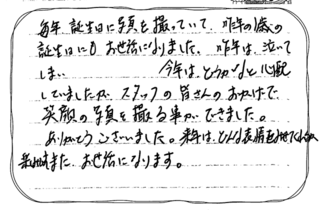 毎年 誕生日に写真を撮っていて、昨年の
誕生日にもお世話になりました。昨年は、泣いて
しまい 今年は、どうかなと心配
していましたが、スタッフの皆さんのおかげで
笑顔の写真を撮る事ができました。
ありがとうございました。来年は、どんな表情を
また お世話になります。